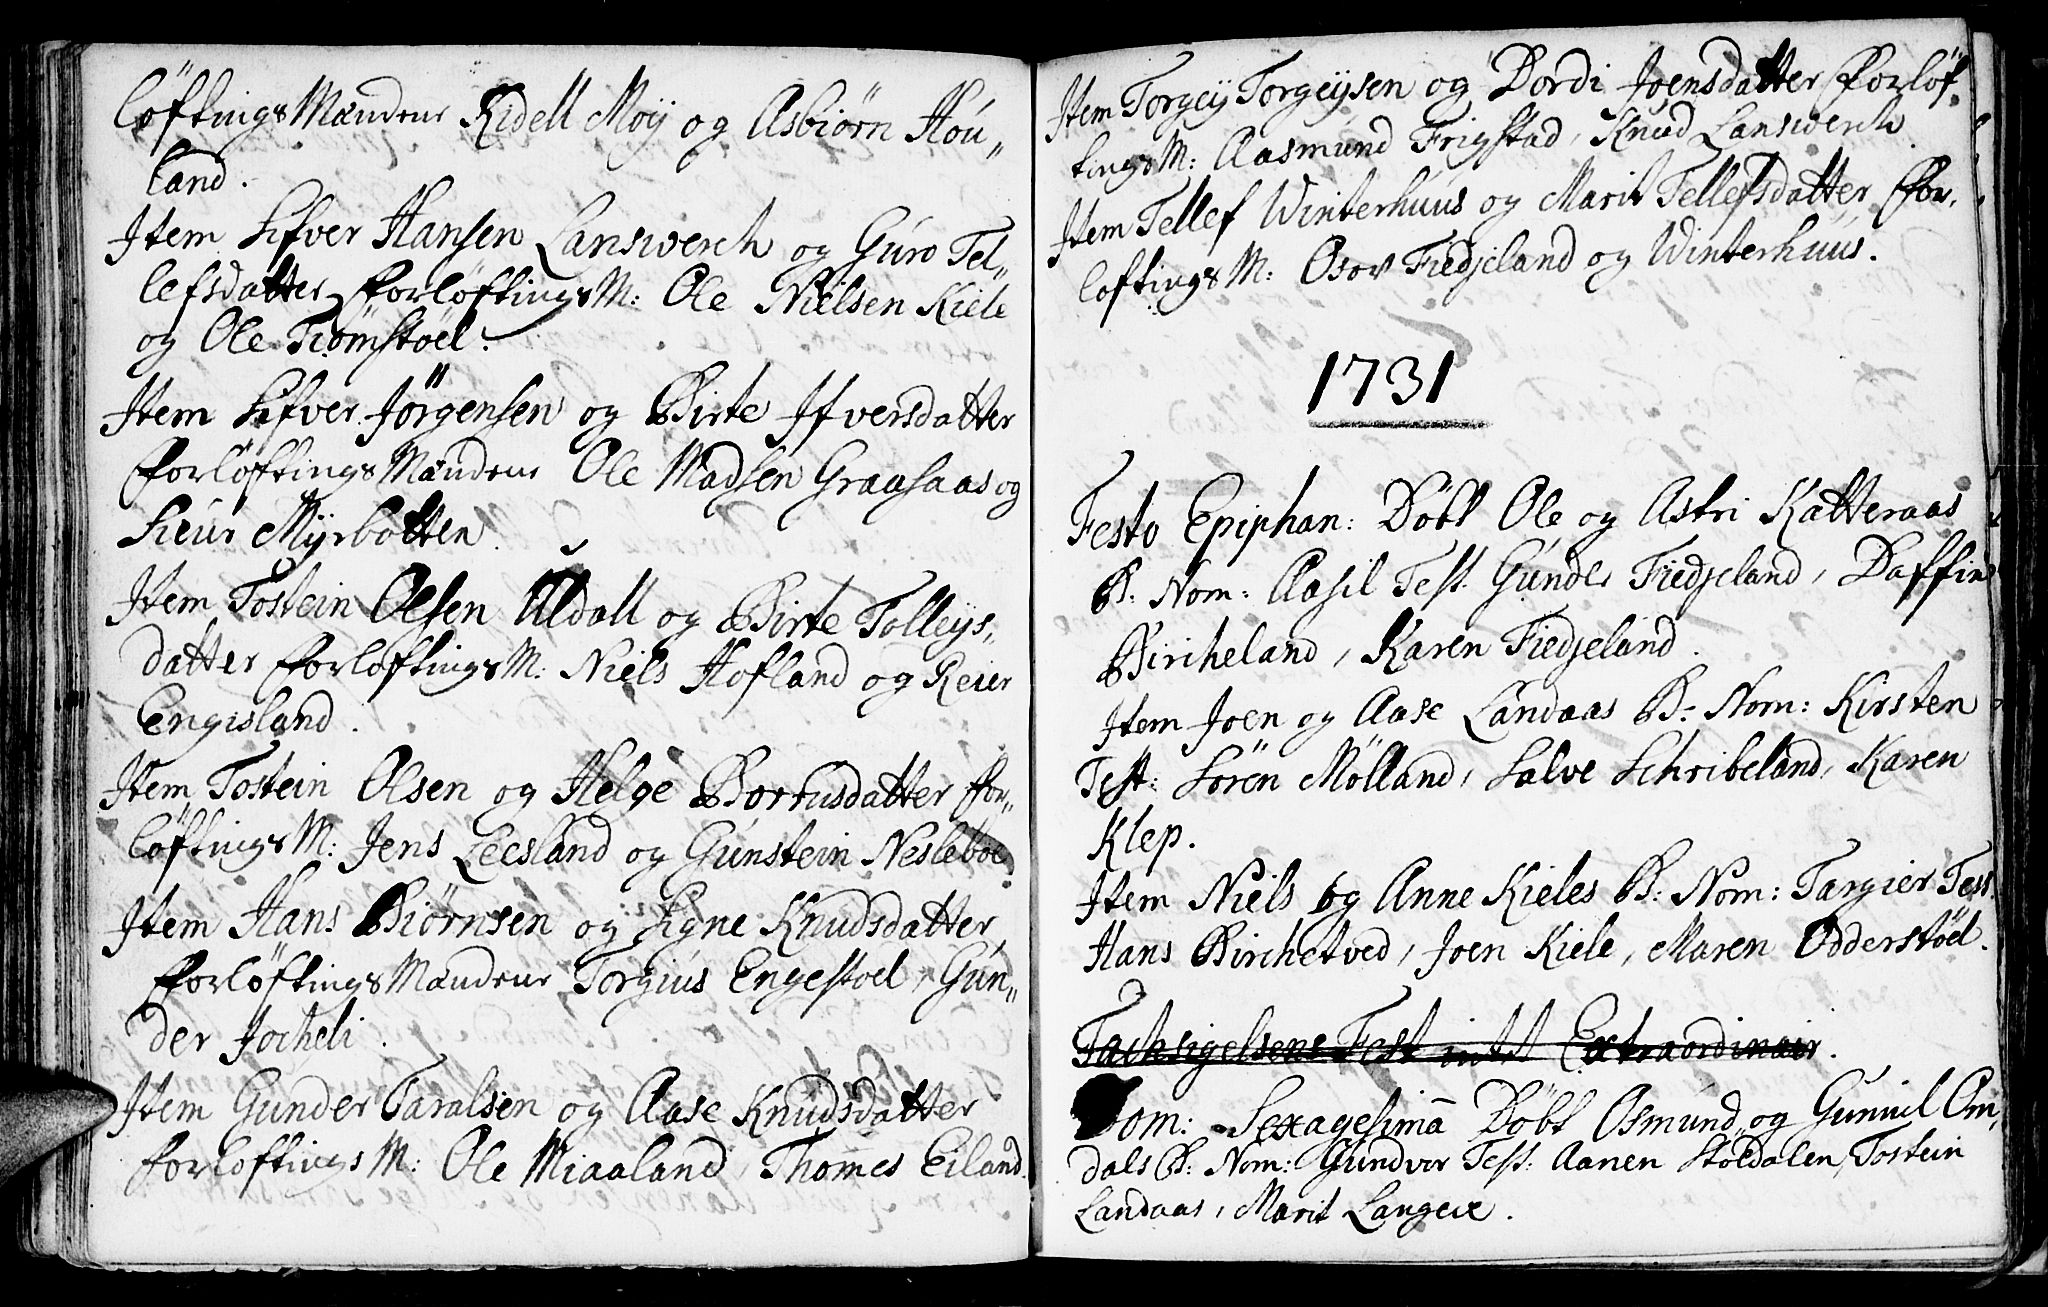 löftings Mændene Kidell Moÿ og Asbiörn Hou„
land.
Item Sifver Hansen Lanswerch og Guro Tel„
lefsdatter Forlöftings M: Ole Nielsen Kiele
og Ole Tiömstöel.
Item Sifver Jörgensen og Birte Ifversdatter
Forlöftings Mændene Ole Madsen Graasaas og
Sieur Myrbotten.
Item Tostein Olsen Uldall og Birte Tolleÿs„
datter Forlöftings M: Niels Hofland og Reier
Engisland.
Item Tostein Olsen og Helge datter For„
löftings M: Jens Leesland og Gunstein Nesleböe
Item Hans Biörnsen og Signe Knudsdatter
Forlöftings Mændene Torgius Engestoel, Gun„
der Jocheli.
Item Gunder Taralsen og Aase Knudsdatter
Forlöftings M: Ole Miaaland, Thomes Eiland.
Item Torgeÿ Torgeÿsen og Dordi Joensdatter Forlöf„
tings M: Aasmund Frigstad, Knud Lanswerch.
Item Tellef Winterhuus og Marit Tellefsdatter For„
loftings M: Osov Fiedjeland og Winterhuus.
1731
Festo Epiphan: Döbt Ole og Astri Katteraas
B: Nom: Aasil Test. Gunder Fiedjeland, Daffin
Bircheland, Karen Fiedjeland.
Item Joen og Aase Landaas B: Nom: Kirsten
Test: Sören Mölland, Salve Schribeland, Karen
Klep.
Item Niels og Anne Kieles B: Nom: Targier Test.
Hans Birchetved, Joen Kiele, Maren Odderstöel.
Tacksigelsens Fest intet Extraordinair.
Dom: Sexagesimā Döbt Osmund og Gunnil Om„
dals B: Nom: Gundvor Test: Aanen Stoedalen, Tostein
Landaas, Marit Langeie.